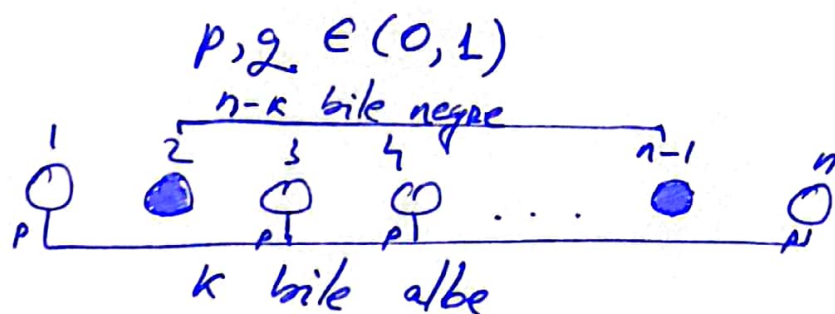 p, q ∈ (0, 1)
n-k bile negre
1 2 3 4 n-1 n
. . . .
p p p p
k bile albe